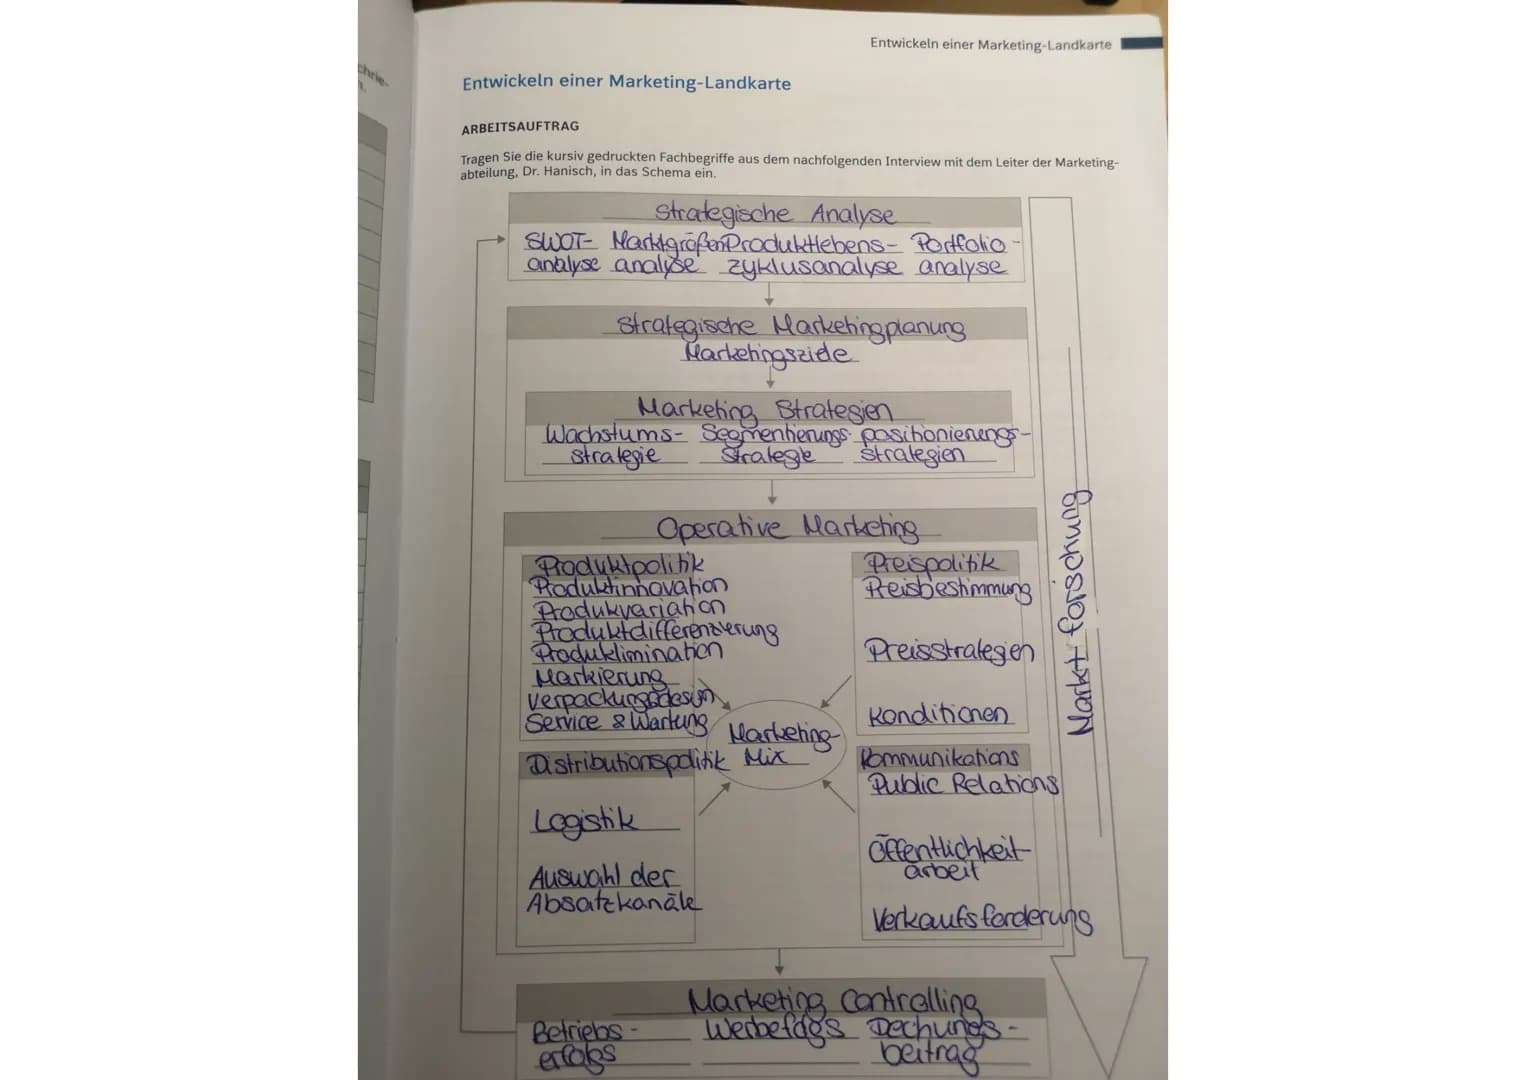 chrie-
Entwickeln einer Marketing-Landkarte
Entwickeln einer Marketing-Landkarte
ARBEITSAUFTRAG
Tragen Sie die kursiv gedruckten Fachbegriffe aus dem nachfolgenden Interview mit dem Leiter der Marketing-
abteilung, Dr. Hanisch, in das Schema ein.
Strategische Analyse
SWOT- Marktgrößen Produktlebens- Portfolio-
analyse analyse zyklusanalyse analyse
Strategische Marketingplanung
Marketingsziele
Marketing Strategien
Wachstums- Segmentierungs- positionierungs-
strategie strategie strategien
Operative Marketing
Produktpolitik
Produktinnovation
Produkvariation
Produktdifferenzierung
Produklimination
Markierung
Verpackungsdesign
Service & Wartung
Preispolitik
Preisbestimmung
Preisstrategien
Konditionen
Marketing-
Mix
Distributionspolitik
Logistik
Auswahl der
Absatzkanäle
Kommunikations
Public Relations
Öffentlichkeit-
arbeit
Verkaufsförderung
Markt forschung
Marketing Controlling
Betriebs- Werbefolgs Dechungs-
erfolgs beitrag